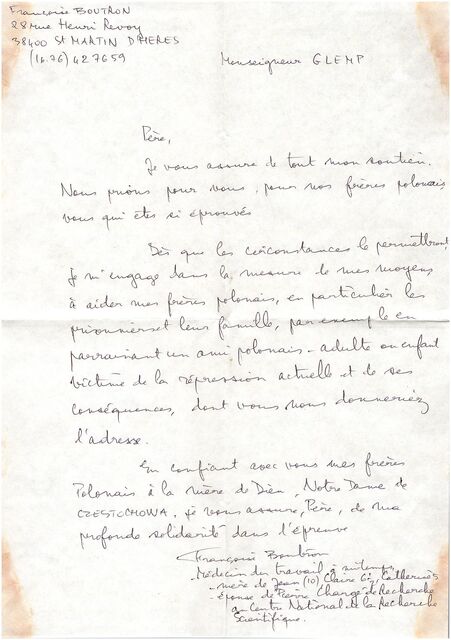 Françoise BOUTRON
28 rue Henri Revoy
38400 St MARTIN D'HERES
(16.76) 427659
Monseigneur GLEMP
Père,
Je vous assure de tout mon soutien.
Nous prions pour vous, pour nos frères polonais,
vous qui êtes si éprouvés
Dès que les circonstances le permettront,
Je m'engage dans la mesure de mes moyens
à aider mes frères polonais, en particulier les
prisonniers et leur famille, par exemple en
parrainant un ami polonais - adulte ou enfant
victime de la répression actuelle et de ses
conséquences, dont vous nous donneriez
l'adresse.
En confiant avec vous mes frères
Polonais à la mère de Dieu, Notre Dame de
CZESTOCHOWA. Je vous assure, Père, de ma
profonde solidarité dans l'épreuve
Françoise Boutron
- Médecin du travail à mi temps,
- mère de Jean (10) Claire 6½, Catherine
- épouse de Pierre Chargé de Recherche
au Centre National de la Recherche
Scientifique.